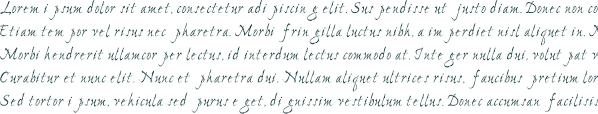 Lorem ipsum dolor sit amet, consectetur adipiscing elit. Suspendisse ut justo diam. Donec non co
Etiam tempor vel risus nec pharetra. Morbi fringilla luctus nibh, a imperdiet nisl aliquet in. N
Morbi hendrerit ullamcorper lectus, id interdum lectus commodo at. Integer nulla dui, volutpat v
Curabitur et nunc elit. Nunc et pharetra dui. Nullam aliquet ultrices risus, faucibus pretium lor
Sed tortor ipsum, vehicula sed purus eget, dignissim vestibulum tellus. Donec accumsan facilisis